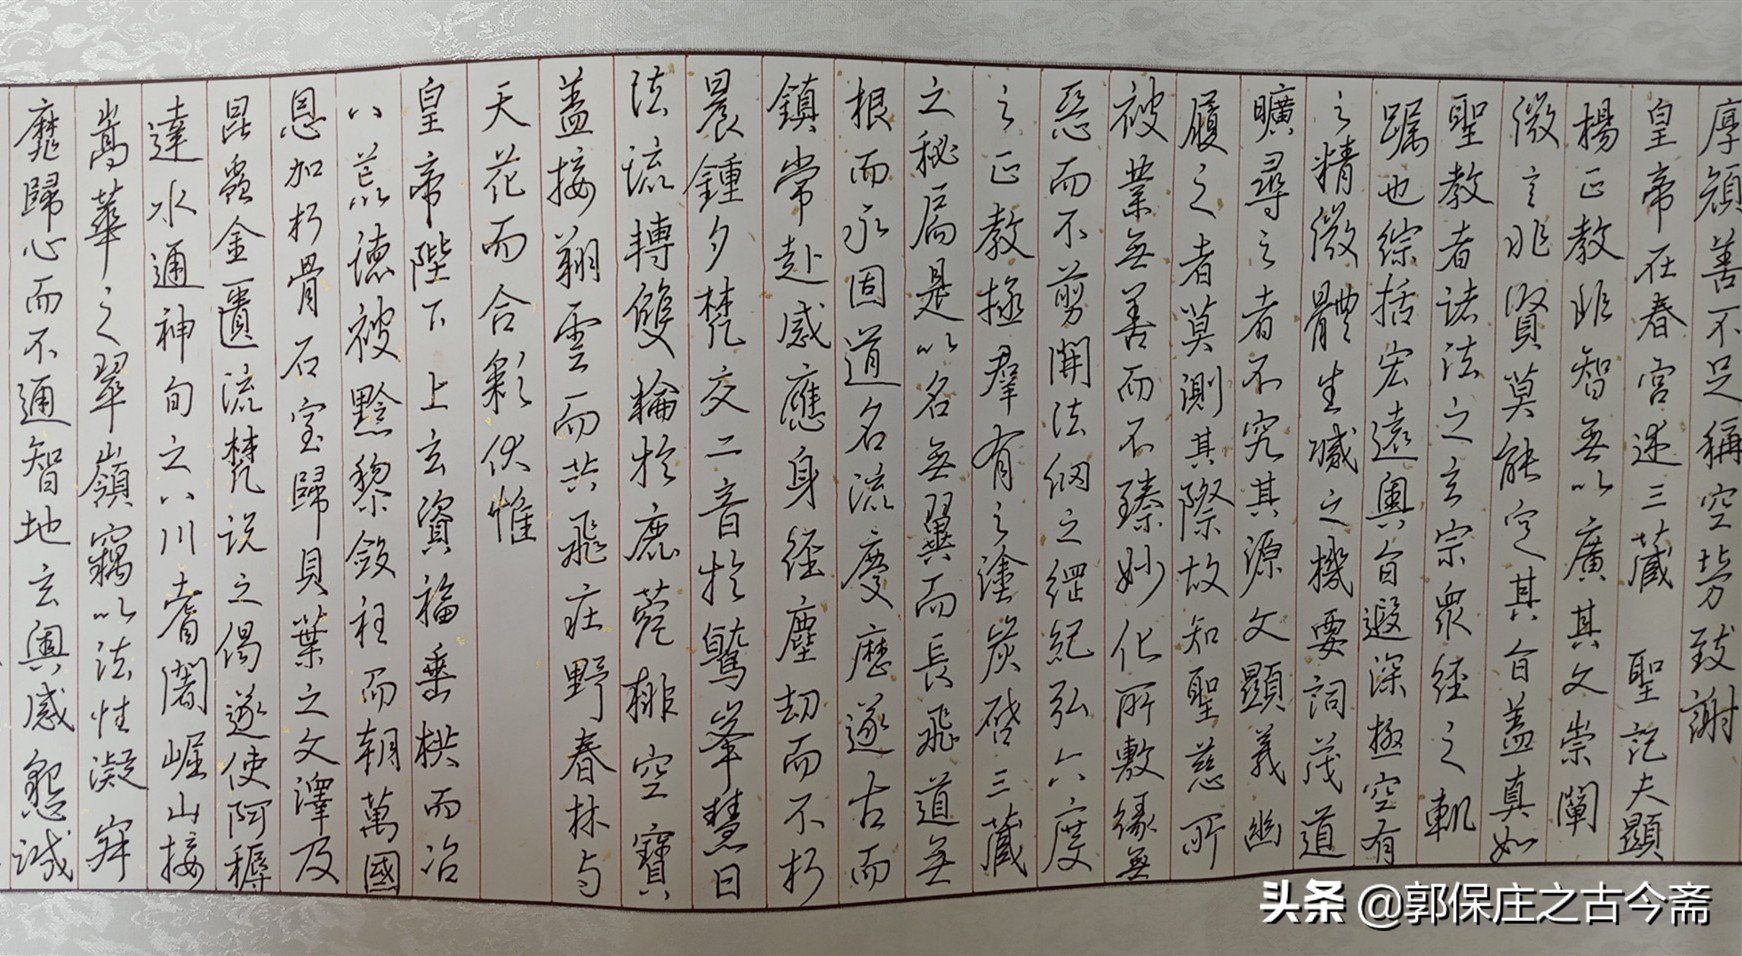 厚顔善不足稱空勞致謝
皇帝在春宮述三藏 聖記夫顯
揚正教非智無以廣其文崇闡
微言非賢莫能定其旨蓋真如
聖教者諸法之玄宗眾經之軌
躅也綜括宏遠奧旨遐深極空有
之精微體生滅之機要詞茂道
曠尋之者不究其源文顯義幽
履之者莫測其際故知聖慈所
被業無善而不臻妙化所敷緣無
惡而不剪開法網之綱紀弘六度
之正教拯羣有之塗炭啓三藏
之秘扃是以名無翼而長飛道無
根而永固道名流慶歷遂古而
鎮常赴感應身經塵劫而不朽
晨鍾夕梵交二音於鷲峯慧日
法流轉雙輪於鹿菀排空寶
蓋接翔雲而共飛莊野春林与
天花而合彩伏惟
皇帝陛下上玄資福垂拱而治
八荒德被黔黎斂衽而朝萬國
恩加朽骨石室歸貝葉之文澤及
昆蟲金匱流梵說之偈遂使阿耨
達水通神甸之八川耆闍崛山接
嵩華之翠嶺竊以法性凝寂
靡歸心而不通智地玄奧感懇誠
头条 @郭保庄之古今斋